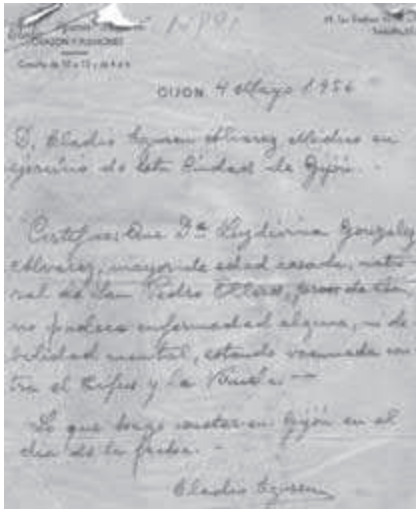 CORAZON Y PULMONES
Consulta de 10 a 12 y de 4 a 6
GIJON 4 Mayo 1956
D. Eladio Alvarez Médico en
ejercicio de esta Ciudad de Gijón. -
Certifico: Que Dª Luzdivina Gonzalez
Alvarez, mayor de edad casada, natu
ral de San Pedro
no padece enfermedad alguna, ni de
bilidad mental, estando vacunada con
tra el tifus y la Viruela. —
Lo que hago constar en Gijón en el
dia de la fecha. -
Eladio